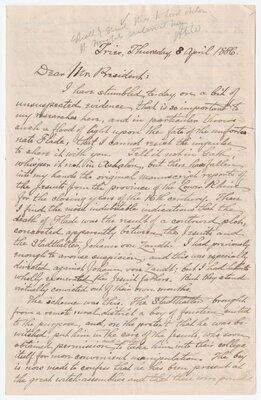 Trier, Thursday 8 April, 1886.
Dear Mr. President:
I have stumbled, today, on a bit of
unsuspected evidence, that is so important to
my researches here, and in particular throws
such a flood of light upon the fate of the unfortu-
nate Flade, that I cannot resist the impulse
to share it with you. Tell it not in Gath,
whisper it not in Askalon. But there has fallen
into my hands the original manuscript reports of
the Jesuits from the province of the Lower Rhine
for the closing years of the 16th century. There
I find the most indubitable indication that the
death of Flade was the result of a contrived plot,
concocted apparently between the Jesuits and
the Stadthalter, Johann von Zandt. I had previously
enough to arouse suspicion, and this was especially
directed against Johann von Zandt; but I had
actually the fathers, and they stand
virtually convicted out of their own mouths.
The scheme was this. The Stadthalter brought
from a remote rural district a boy of fourteen, suited
to the purpose, and, on the pretext that he was be-
witched, put him in the care of the Jesuits, who soon
obtained permission to take him into their college
itself for more convenient manipulation. The boy
is now made to confess that he has been present at
the great witch-assemblies and that there were present